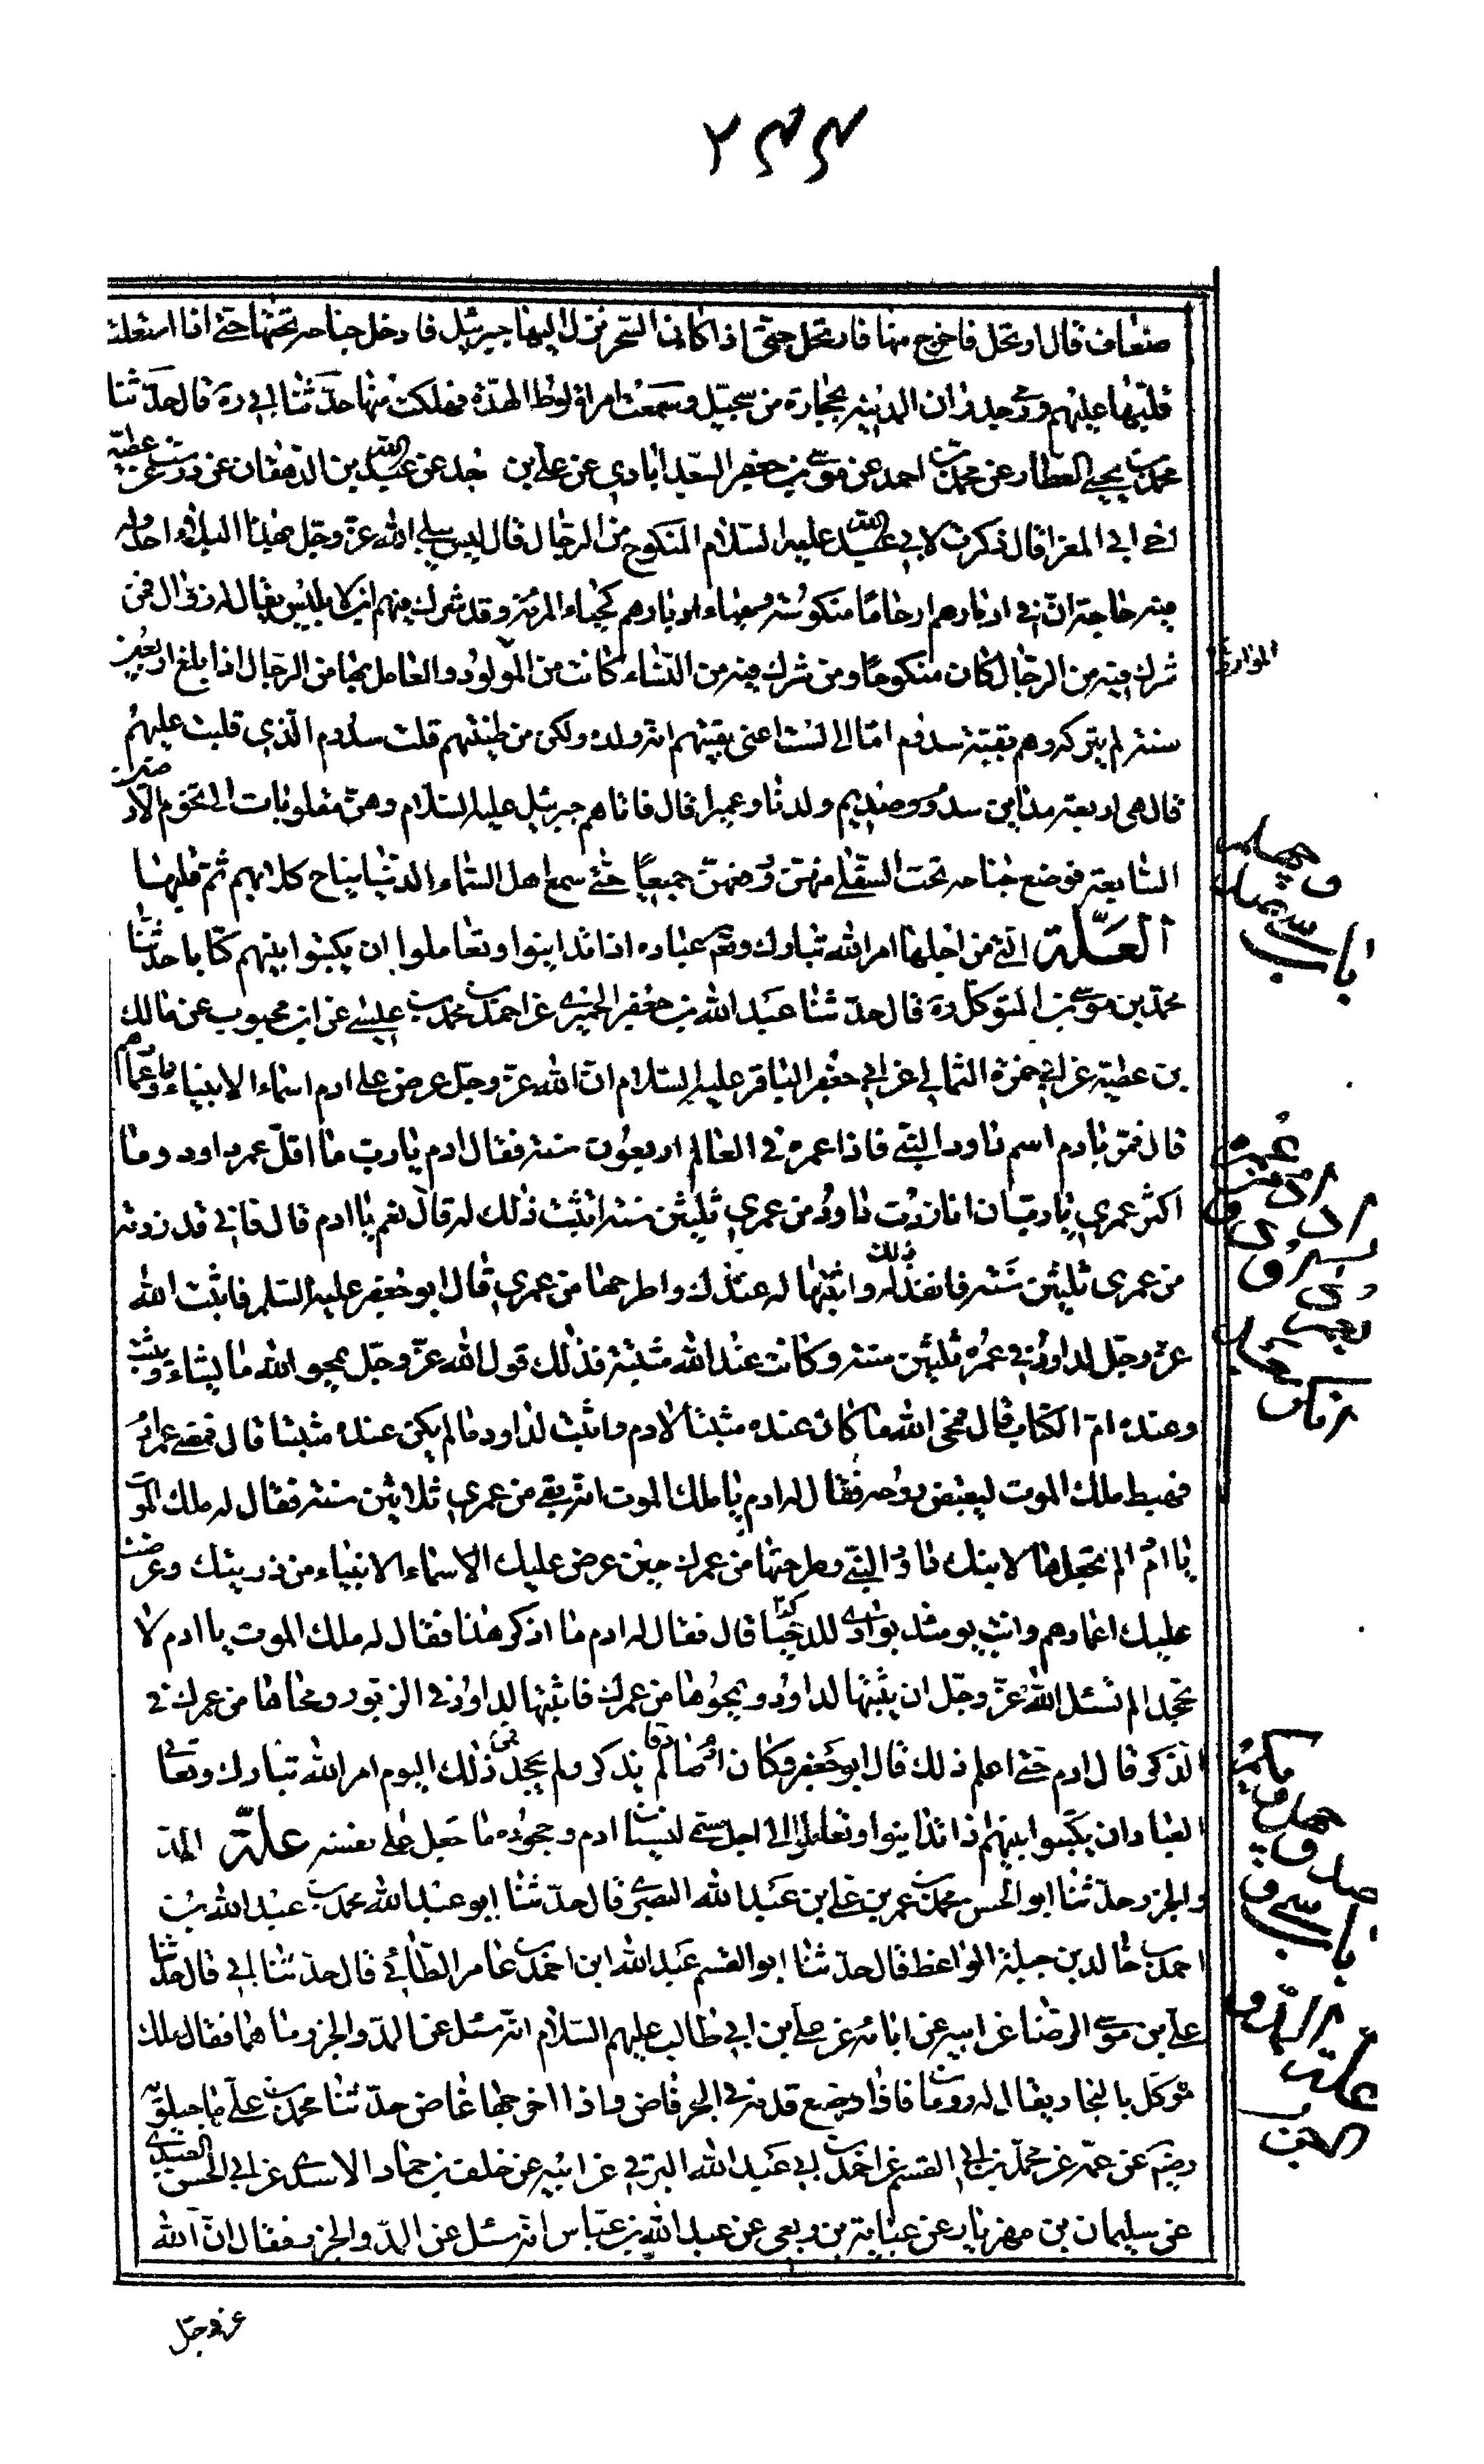 ضعاف قال ارتحل فاخرج منها فارتحل حتى اذا كان السحر نزل اليها جبرئيل فادخل جناحه تحتها حتى اذا استعلت
قلبها عليهم ورمى جدران المدينة بحجارة من سجيل وسمعت امراة لوط الهدة فهلكت منها حدثنا ابى ره قال حدثنا
محمد بن يحيى العطار عن محمد بن احمد عن موسى بن جعفر السعدابادي عن علي بن عن عبيد الله بن الدهقان عن درست عن عطية
اخى ابى المعزا قال ذكرت لابي عبد الله عليه السلام المنكوح من الرجال قال ليس يبلي الله عز وجل بهذا البلاء احدا وله
فيه حاجة ان في ادبارهم ارحاما منكوسة وحياء ادبارهم كحياء المرئة وقد شرك فيهم ابن لابليس يقال له زوال فمن
شرك فيه من الرجال كان منكوحا ومن شرك فيه من النساء كانت من المولود والعامل بها من الرجال اذا بلغ اربعين
الموارد
سنة لم يتركه وهم بقية سدوم اما اني لست اعنى بقيتهم انه ولده ولكن من طينتهم قلت سدوم الذي قلبت عليهم
قال هى اربعة مداين سدوم وصديم ولدنا وعميرا قال فاتاهم جبرئيل عليه السلام وهن مقلوبات الى تخوم الارضين
السابعة فوضع جناحه تحت السفلى منهن ورفعهن جميعا حتى سمع اهل السماء الدنيا نباح كلابهم ثم قلبها
باب
العلة التي من اجلها امر الله تبارك وتعم عباده اذا تداينوا وتعاملوا ان يكتبوا بينهم كتابا حدثنا
محمد بن موسى بن المتوكل ره قال حدثنا عبد الله بن جعفر الحميري عن احمد بن محمد بن عيسى عن ابن محبوب عن مالك
بن عطية عن ابي حمزة الثمالي عن ابي جعفر الباقر عليه السلام ان الله عز وجل عرض على ادم اسماء الانبياء واعمارهم
قال فمر بادم اسم داود النبي فاذا عمره في العالم اربعون سنة فقال ادم يا رب ما اقل عمر داود وما
عمره
اكثر عمري يا رب ان انا زدت داود من عمري ثلثين سنة اتثبت ذلك له قال نعم يا ادم قال فاني قد زدته
من عمرى ثلثين سنة فانفذ ذلك له واثبتها له عندك واطرحها من عمري قال ابو جعفر عليه السلم فاثبت الله
عز وجل لداود في عمره ثلثين سنة وكانت عند الله مثبتة فذلك قول الله عز وجل يمحو الله ما يشاء ويثبت
وعنده ام الكتاب قال فمحى الله ما كان عنده مثبتا لادم واثبت لداود ما لم يكن عنده مثبتا قال فمضى عمر ادم
فهبط ملك الموت ليقبض روحه فقال له ادم يا ملك الموت انه بقى من عمري ثلاثين سنة فقال له ملك الموت
يا ادم الم تجعلها لابنك داود النبي وطرحتها من عمرك حين عرض عليك الاسماء الانبياء من ذريتك وعرضت
عليك اعمارهم وانت يومئذ بوادي الدخيا قال فقال له ادم ما اذكر هذا فقال له ملك الموت يا ادم لا
تجحد الم تسئل الله عز وجل ان يثبتها لداود ويمحوها من عمرك فاثبتها لداود في الزبور ومحاها من عمرك في
الذكر قال ادم حتى اعلم ذلك قال ابو جعفر وكان ادم صادقا لم يذكر ولم يجحد فمن ذلك اليوم امر الله تبارك وتعالى
العباد ان يكتبوا بينهم اذا تداينوا وتعاملوا الى اجل مسمى لنسيان ادم وجحوده ما جعل على نفسه علة المد
والجزر حدثنا ابو الحسن محمد بن عمر بن علي بن عبد الله البصري قال حدثنا ابو عبد الله محمد بن عبد الله بن
باب
احمد بن خالد بن جبلة الواعظ قال حدثنا ابو القسم عبد الله ابن احمد بن عامر الطائي قال حدثنا ابي قال حدثنا
علي بن موسى الرضا عن ابيه عن ابائه عن علي بن ابي طالب عليهم السلام انه سئل عن المد والجزر ما هما فقال ملك
علة المد و
موكل بالبحار يقال له رومان فاذا وضع قدمه في البحر فاض واذا اخرجها غاض حدثنا محمد بن علي ماجيلويه
رضم عن عمه عن محمد بن ابي القسم عن احمد بن ابي عبد الله البرقي عن ابيه عن خلف بن حماد الاسدي عن ابي الحسن العبدي
عن سليمان بن مهران عن عباية بن ربعي عن عبد الله بن عباس انه سئل عن المد والجزر فقال ان الله
عز وجل